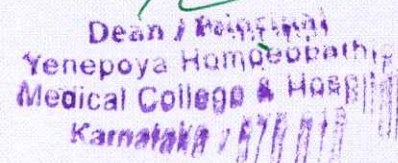 Dean / Principal
Yenepoya Homoeopathic
Medical College & Hospital
Karnataka